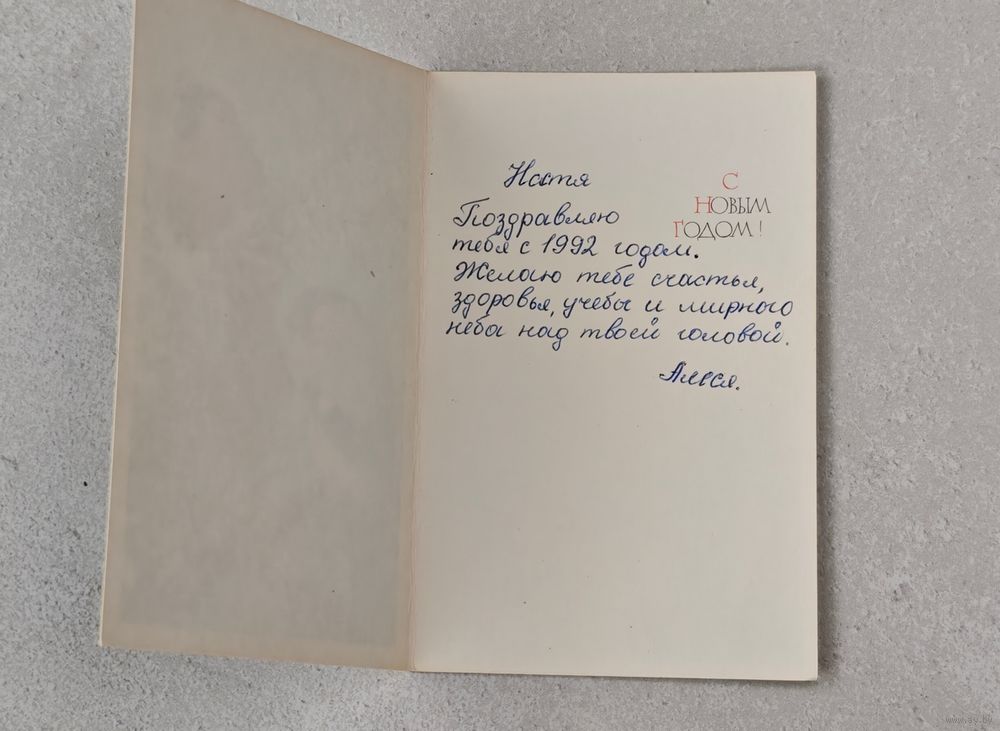 Настя
С
НОВЫМ
ГОДОМ!
Поздравляю
тебя с 1992 годом.
Желаю тебе счастья,
здоровья, учебы и мирного
неба над твоей головой.
Алеся.
www.ay.by